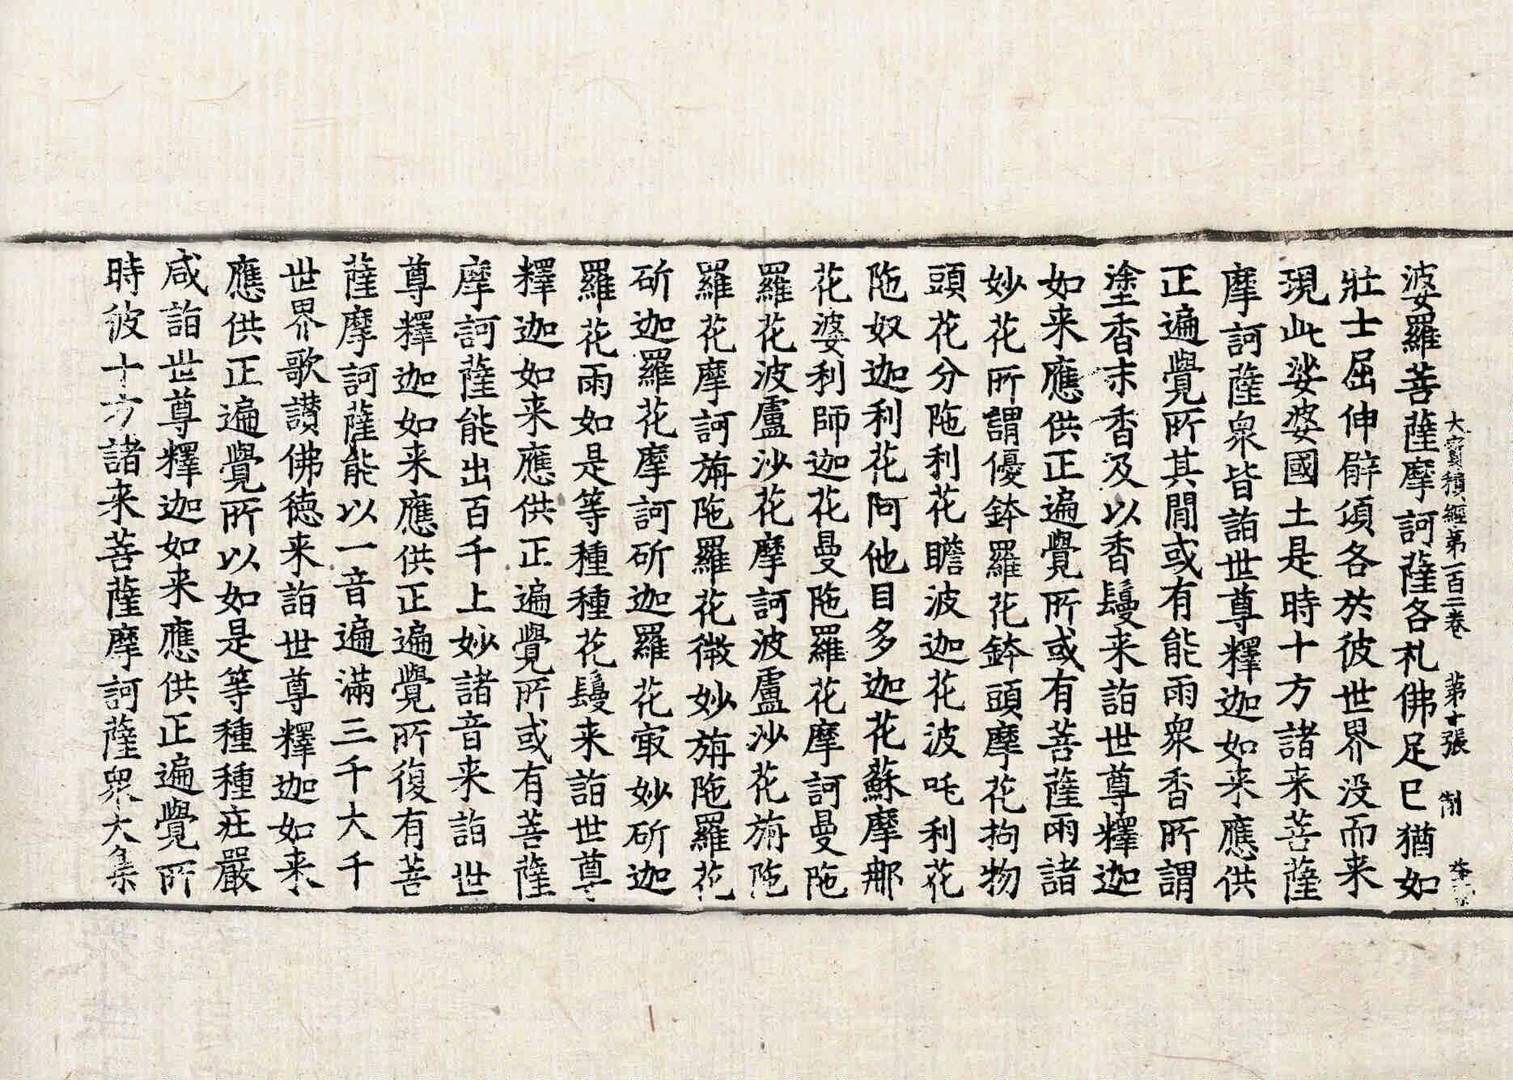 大寶積經第一百二卷 第十張 制
婆羅菩薩摩訶薩各礼佛足已猶如
壯士屈伸臂頃各於彼世界没而来
現此娑婆國土是時十方諸来菩薩
摩訶薩衆皆詣世尊釋迦如来應供
正遍覺所其閒或有能雨衆香所謂
塗香末香及以香鬘来詣世尊釋迦
如来應供正遍覺所或有菩薩雨諸
妙花所謂優鉢羅花鉢頭摩花拘物
頭花分陁利花瞻波迦花波吒利花
陁奴迦利花阿他目多迦花蘇摩那
花婆利師迦花曼陁羅花摩訶曼陁
羅花波盧沙花摩訶波盧沙花旃陁
羅花摩訶旃陁羅花微妙旃陁羅花
斫迦羅花摩訶斫迦羅花㝡妙斫迦
羅花雨如是等種種花鬘来詣世尊
釋迦如来應供正遍覺所或有菩薩
摩訶薩能出百千上妙諸音来詣世
尊釋迦如来應供正遍覺所復有菩
薩摩訶薩能以一音遍滿三千大千
世界歌讃佛德来詣世尊釋迦如来
應供正遍覺所以如是等種種莊嚴
咸詣世尊釋迦如来應供正遍覺所
時彼十方諸来菩薩摩訶薩衆大集